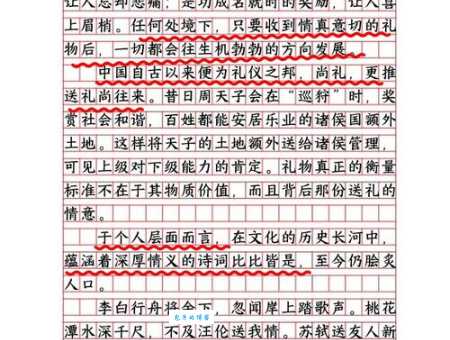 让人忘却悲痛；是功成名就时的奖励，让人喜
上眉梢。任何处境下，只要收到情真意切的礼
物后，一切都会往生机勃勃的方向发展。
中国自古以来便为礼仪之邦，尚礼，更推
送礼尚往来。昔日周天子会在“巡狩”时，奖
赏社会和谐，百姓都能安居乐业的诸侯国额外
土地。这样将天子的土地额外送给诸侯管理，
可见上级对下级能力的肯定。礼物真正的衡量
标准不在于其物质价值，而且背后那份送礼的
情意。
于个人层面而言，在文化的历史长河中，
蕴涵着深厚情义的诗词比比皆是，至今仍脍炙
人口。
李白行舟将金下，忽闻岸上踏歌声。桃花
潭水深千尺，不及汪伦送我情。苏轼送友人新